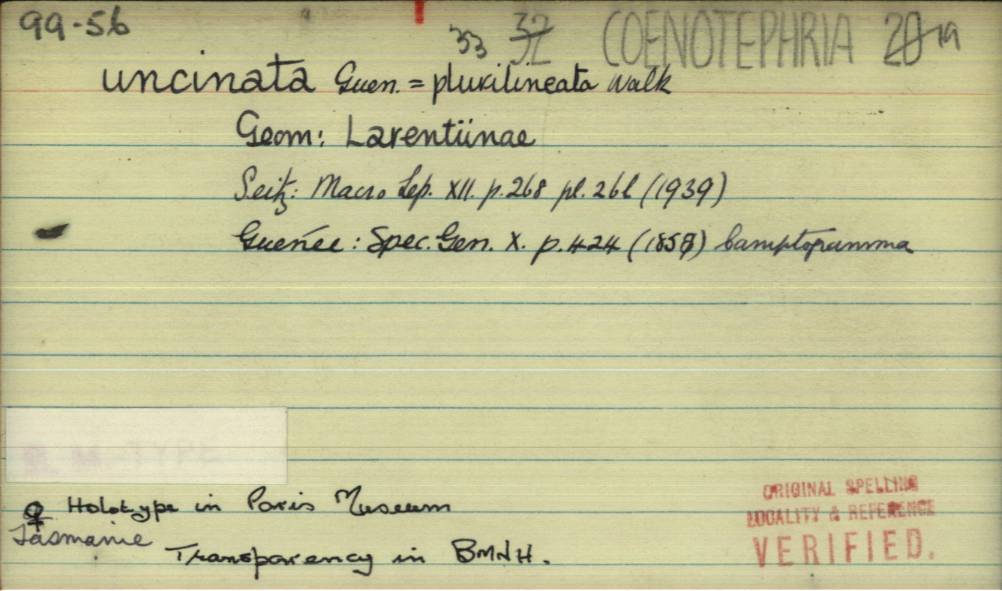 99-56
33 32 COENOTEPHRIA 20 19
uncinata Guen. = plurilineata Walk
Geom: Larentiinae
Seitz: Macro Lep. XII. p.268 pl.26l (1939)
Guenée: Spec. Gen. X. p.424 (1858) Camptogramma
B. M. TYPE
♀ Holotype in Paris Museum
Tasmanie
Transparency in BMNH.
ORIGINAL SPELLING
LOCALITY & REFERENCE
VERIFIED.